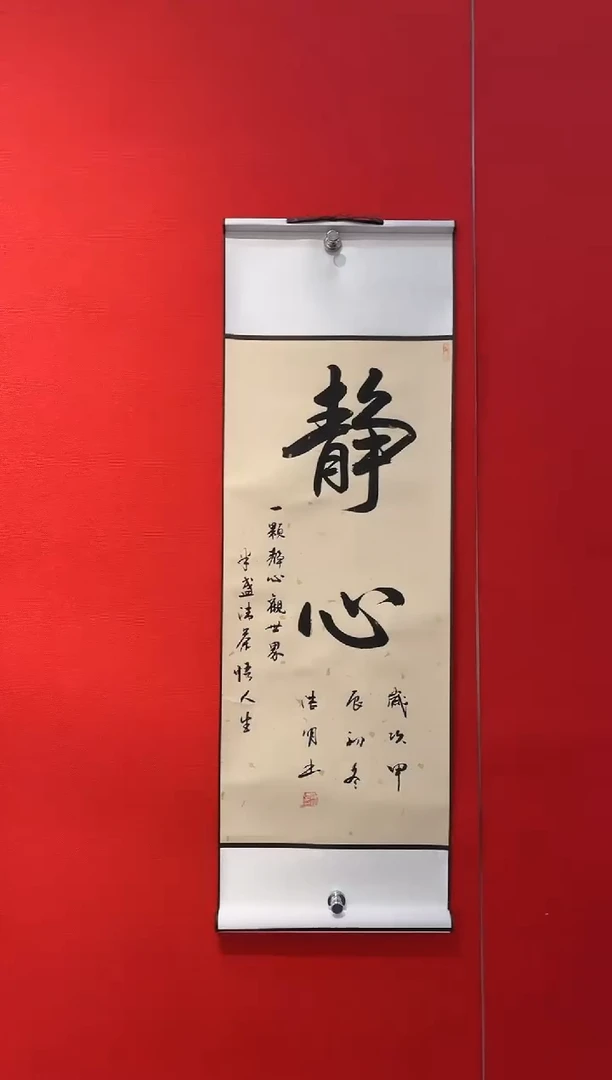 静心
一顆靜心觀世界
半盞清茶悟人生
歲次甲
辰初冬
浩明书